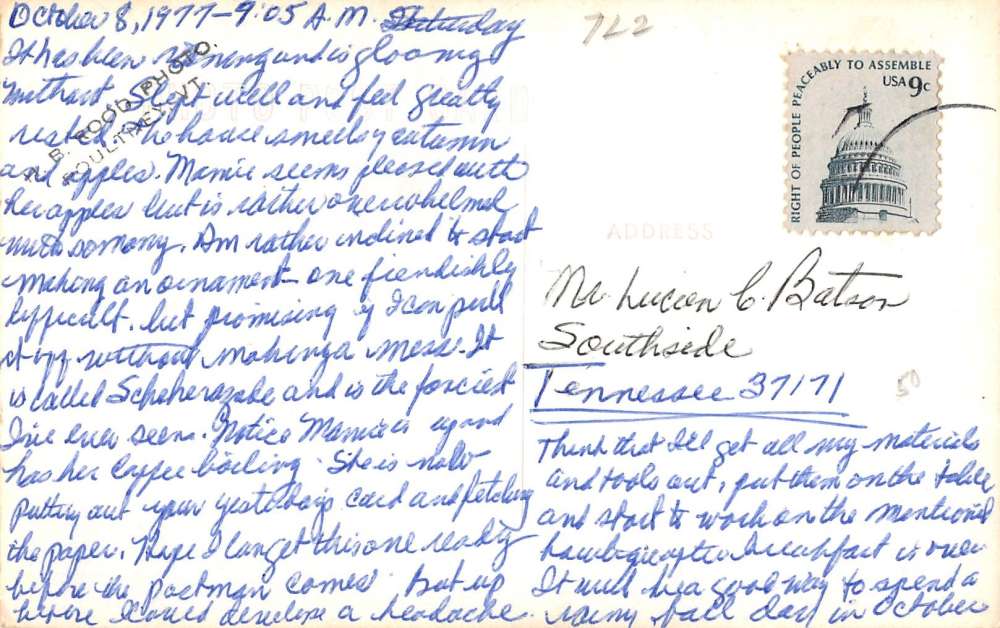 October 8, 1977-9:05 A.M. Saturday
It has been raining and is gloomy
without. Slept well and feel greatly
rested. The house smells of autumn
and apples. Mamie seems pleased with
her apples but is rather overwhelmed
with so many. Am rather inclined to start
making an ornament - one fiendishly
difficult, but promising if I can pull
it off without making a mess. It
is called Scheherazade and is the fanciest
I've ever seen. Notice Mamie is up and
has her coffee boiling. She is now
putting out your yesterday's card and fetching
the paper. Hope I can get this one ready
before the postman comes. But up
here I could develop a headache.
B. FOOD PHOTO.
POULTNEY, VT.
722
RIGHT OF PEOPLE PEACEABLY TO ASSEMBLE
USA 9c
ADDRESS
Mr. Lucien C. Batson
Southside
Tennessee 37171
50
Think that I'll get all my materials
and tools out, put them on the table
and start to work on the mentioned
after breakfast is over
It will be a good way to spend a
rainy fall day in October